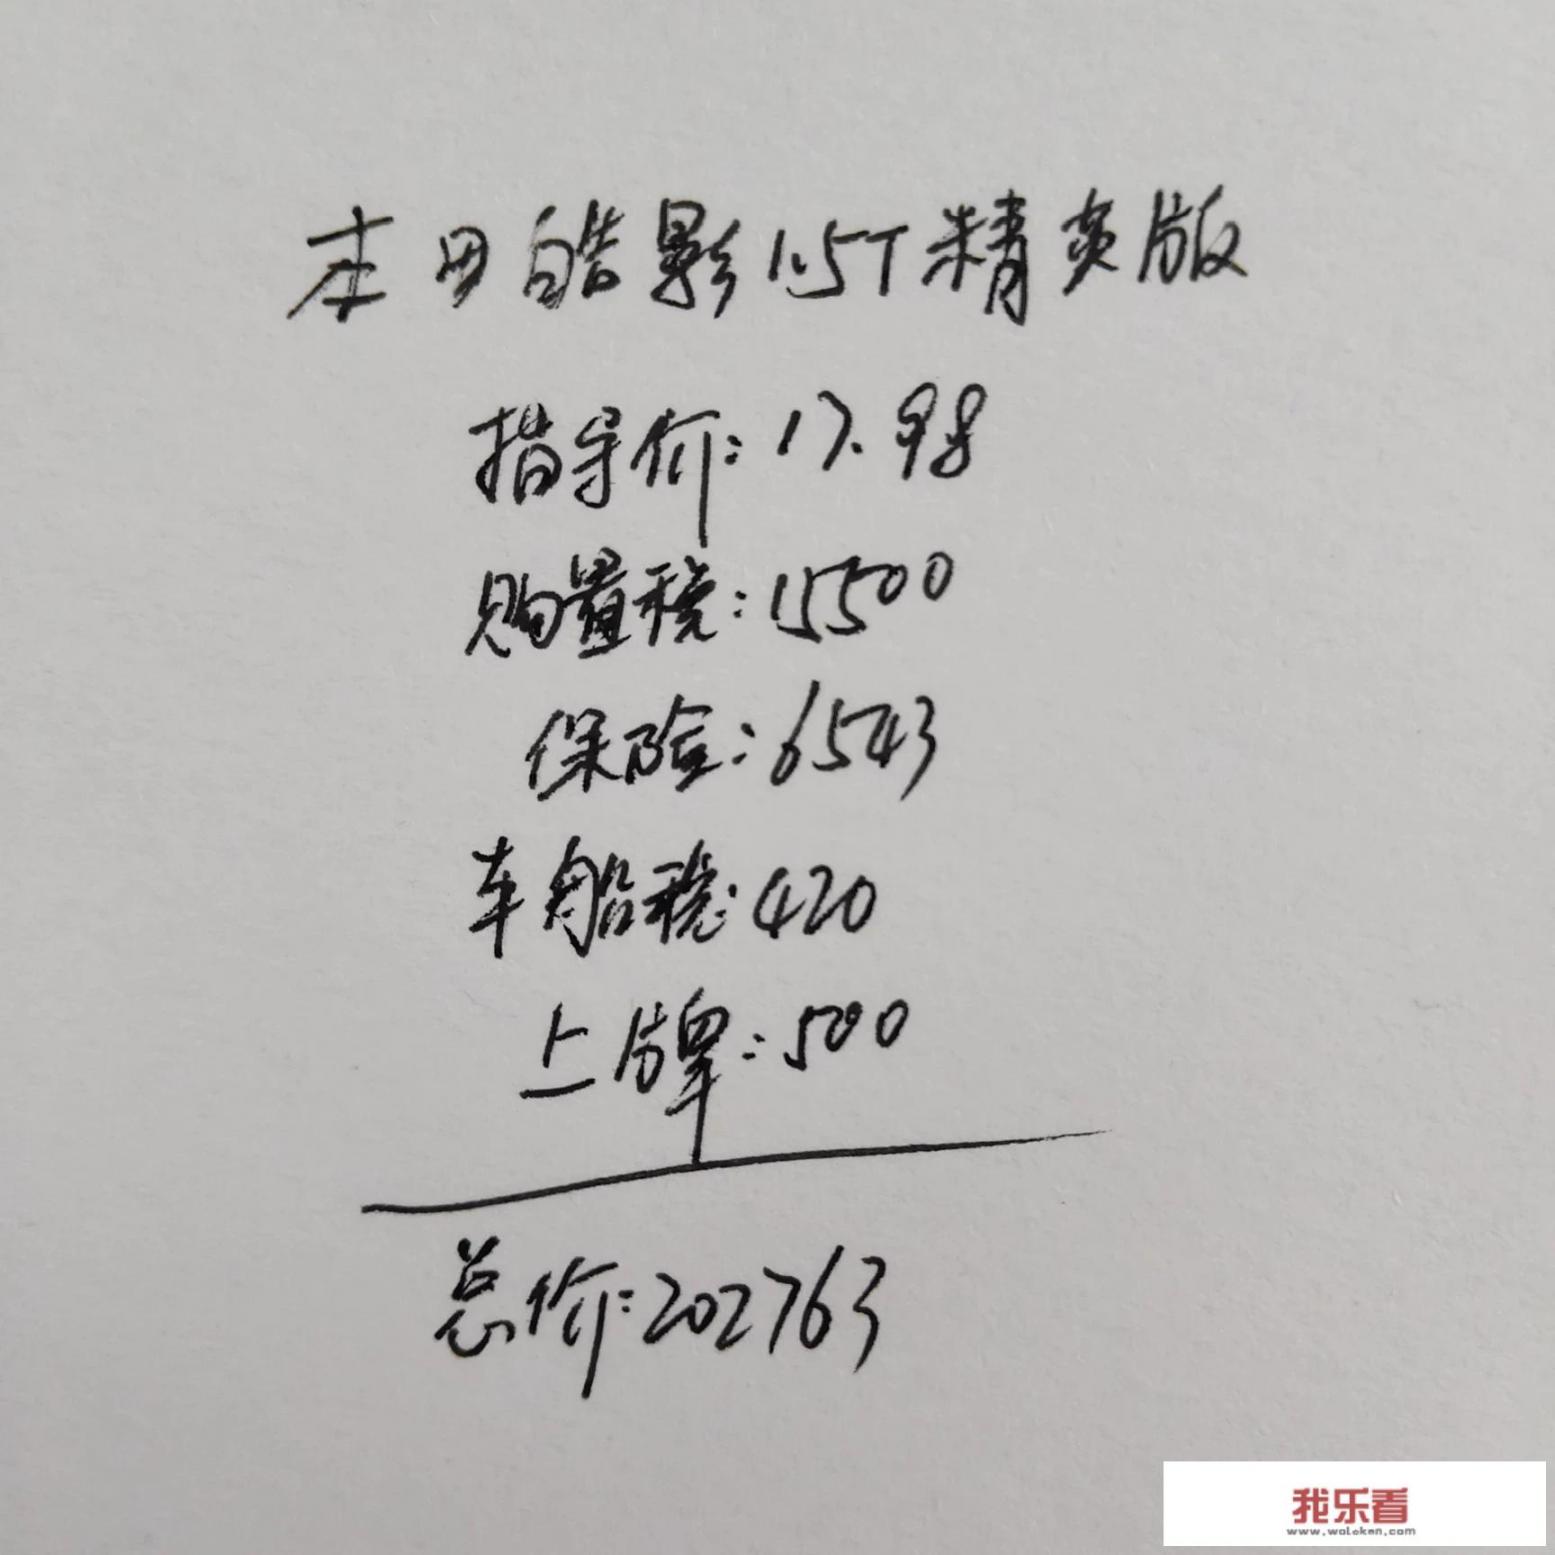 本田皓影1.5T精英版
指导价:17.98
购置税:15500
保险:6543
车船税:420
上牌:500
总价:202763
我乐看
www.woleken.com